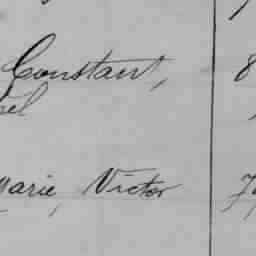 Constant, 8
Marie, Victor